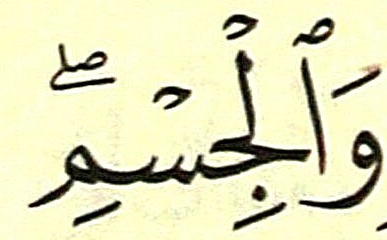 وَٱلْجِسْمِۖ